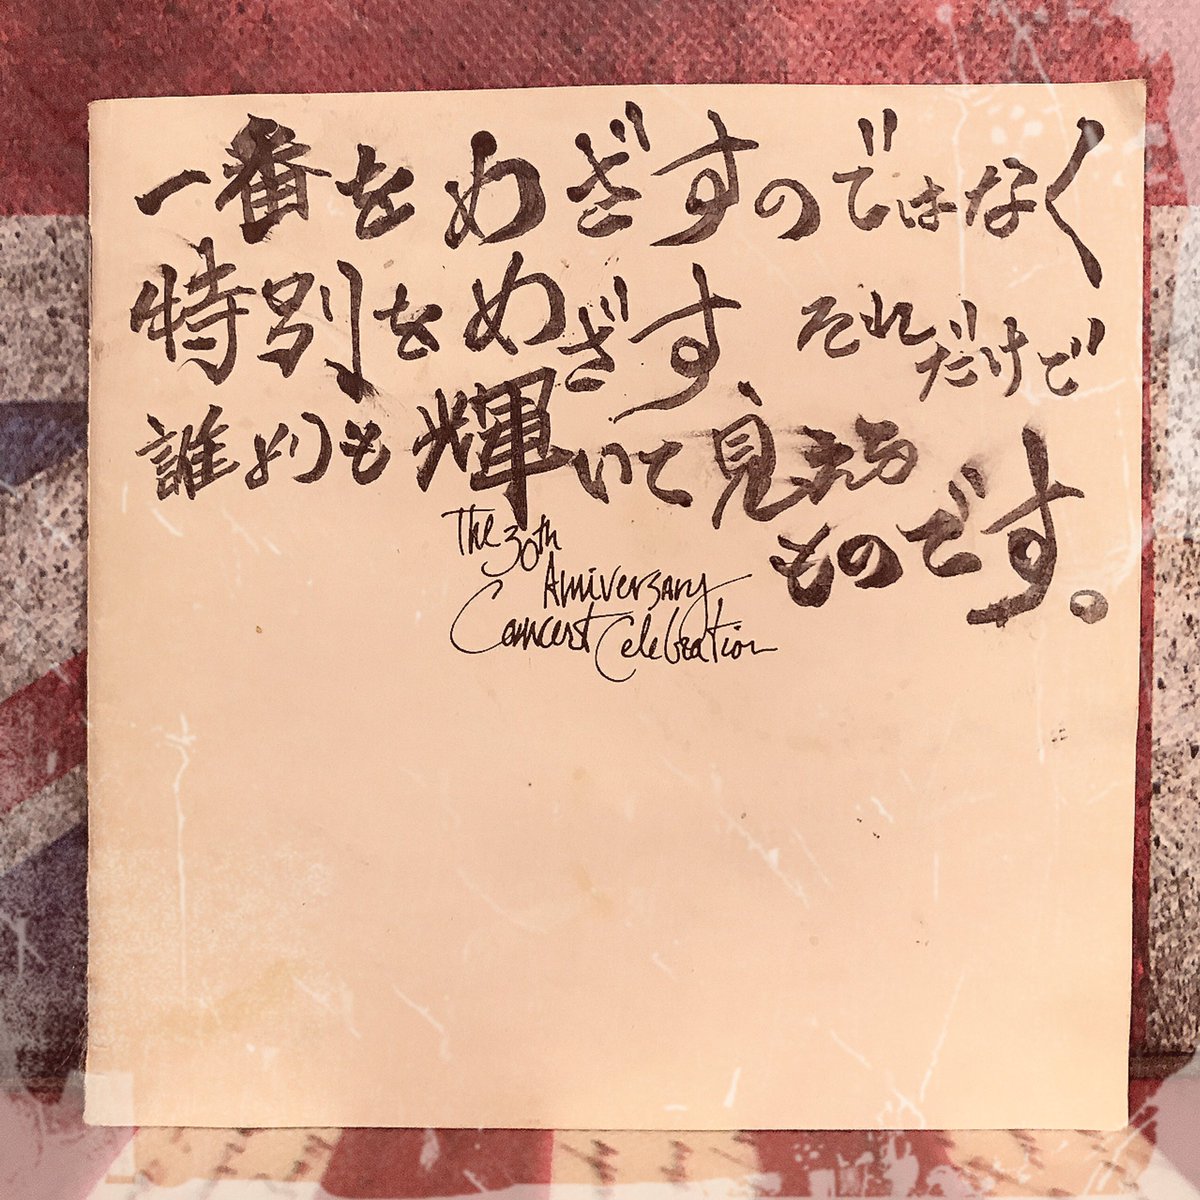 一番をめざすのではなく
特別をめざす それだけで
誰よりも輝いて見える
ものです。
The 30th
Anniversary
Concert Celebration